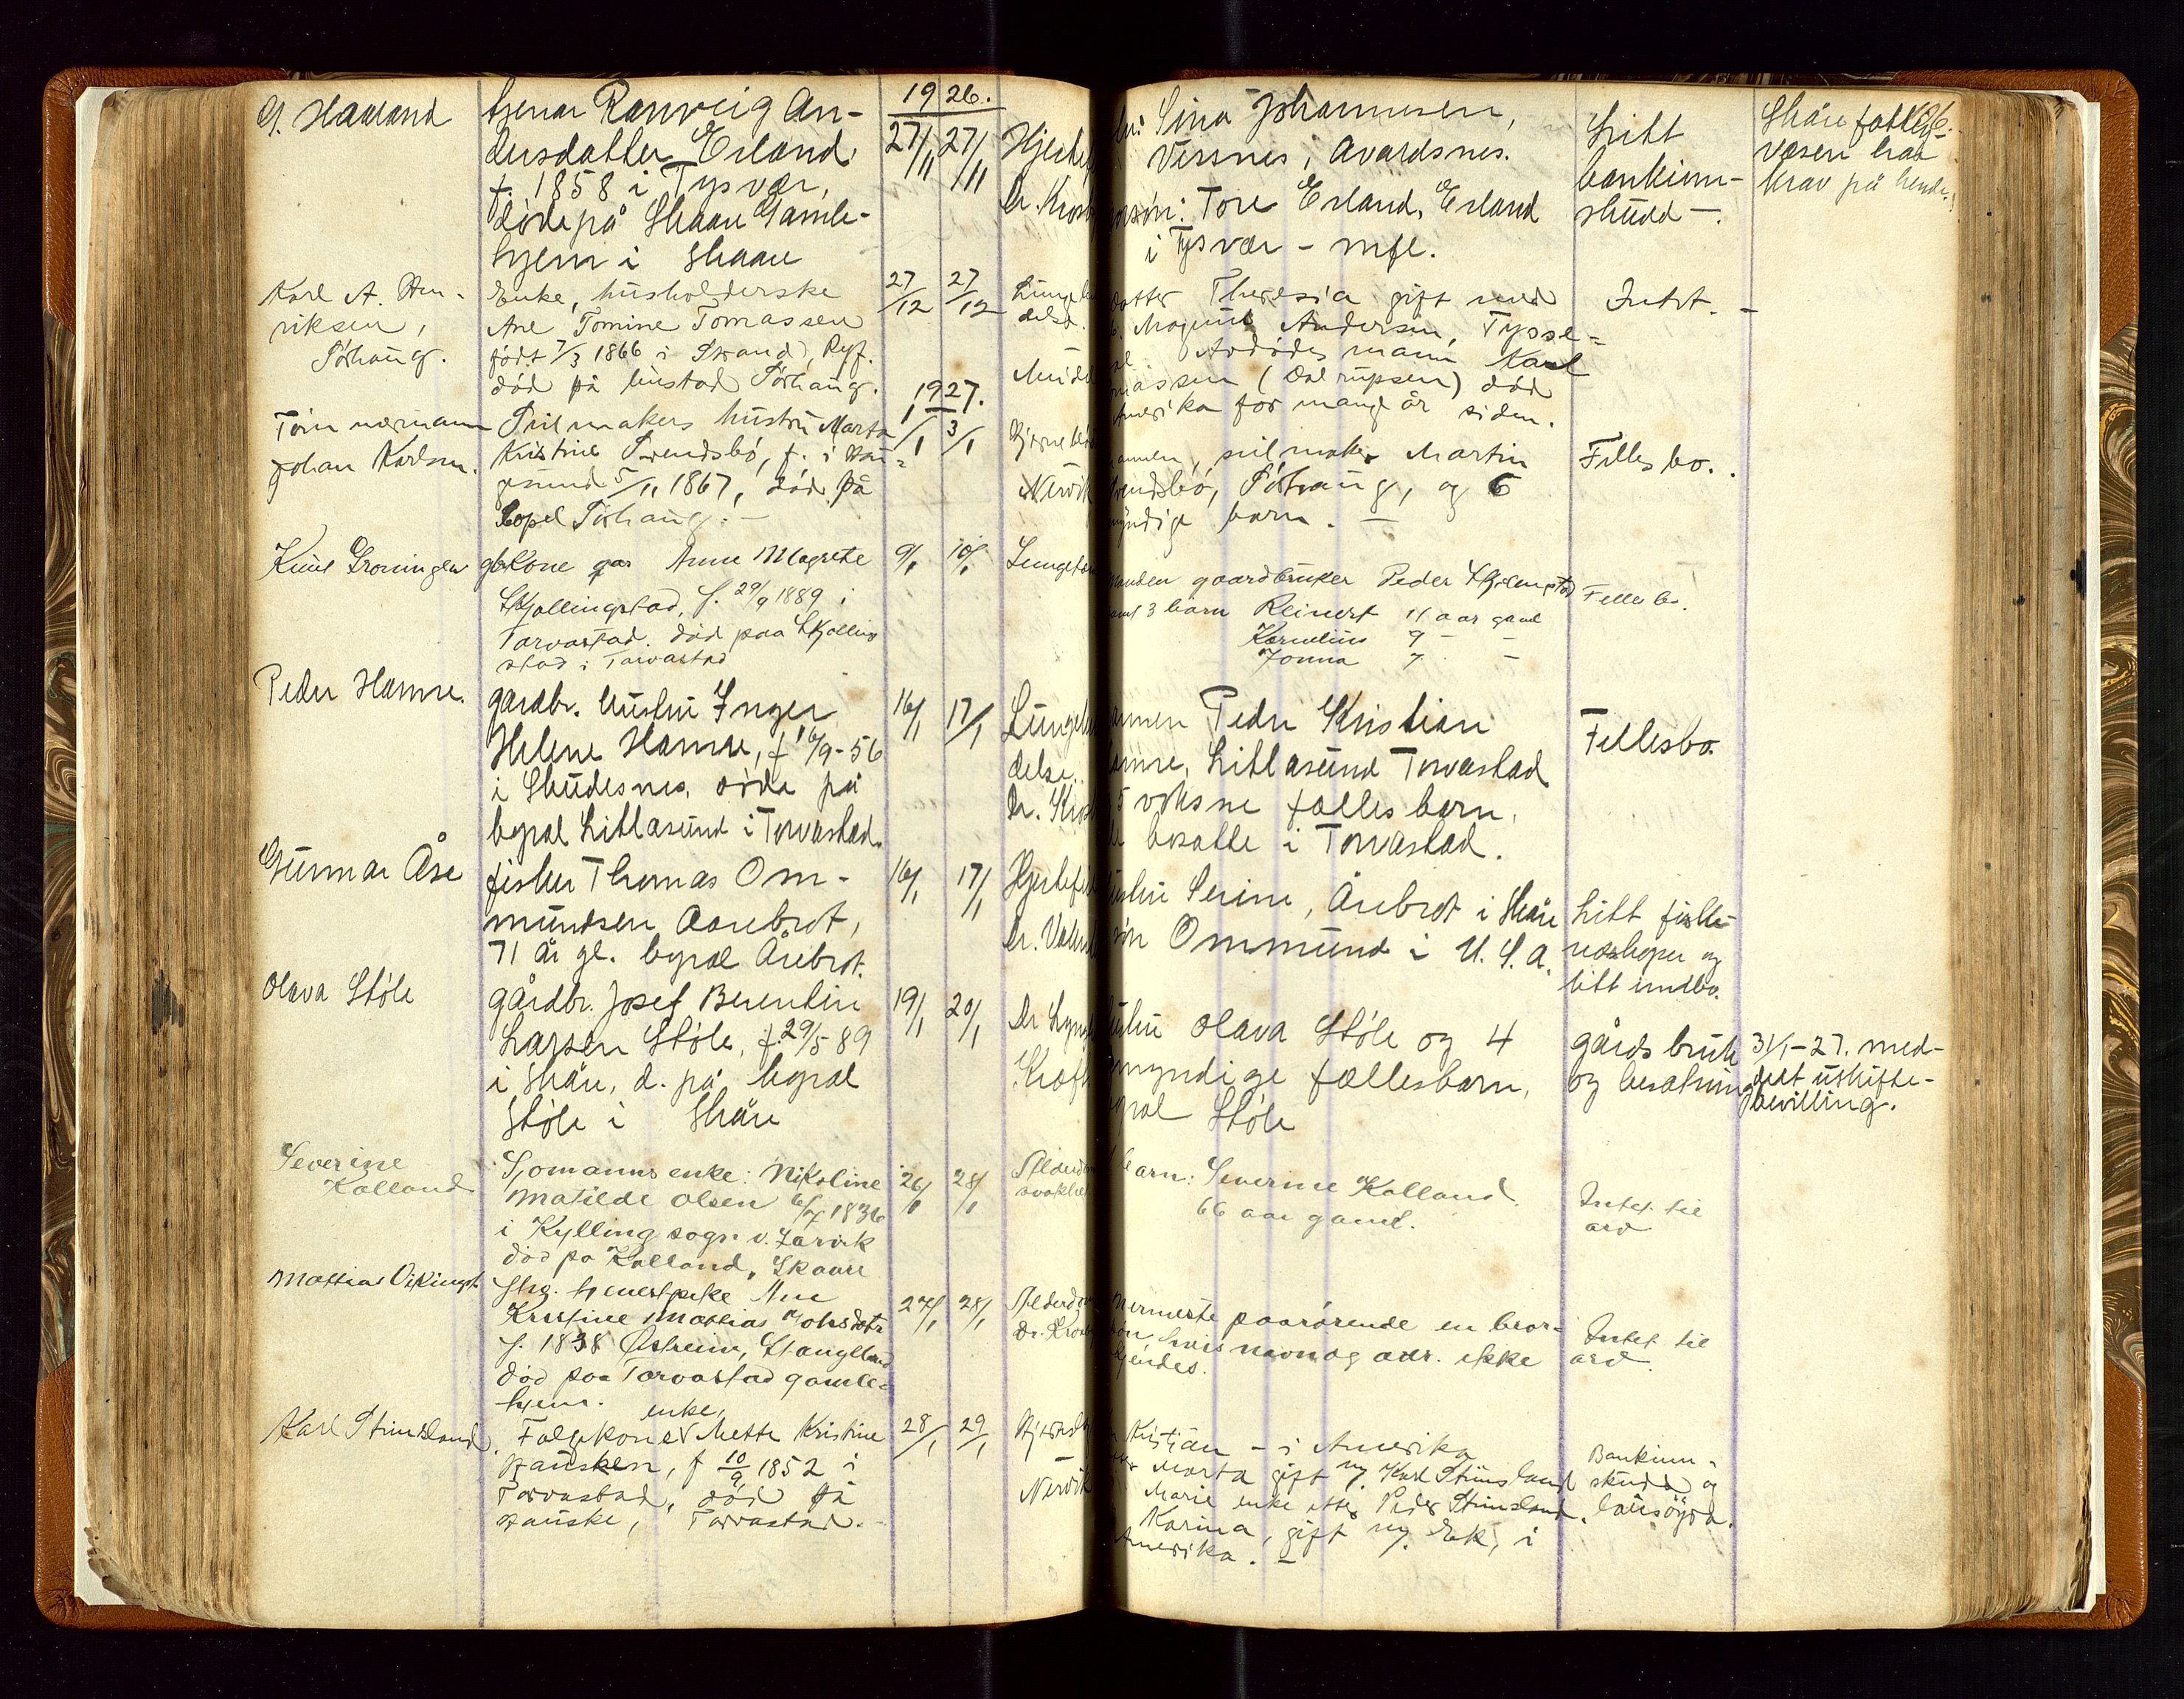 1926.
G. Haaland
tjener Ranveig An-
dersdatter Erland
f. 1858 i Tysvær,
døde på Skaare Gamle-
hjem i Skaare
27/11 27/11
Dr.
Sina Johannesen,
Visnes, Avardsnes.
Tore Erland, Erland
i Tysvær - mfl.
Litt
bankinn-
skudd -.
Skåre fattig-
væsen har
krav på hende.
Karl A. Hen-
riksen,
Sörhaug.
Enke, husholderske
Ane Tomine Tomassen
födt 7/3 1866 i Strand, Ryf.
död på bustad Sörhaug.
27/12 27/12
datter Theresia gift med
Magnus Andersen, Tysse-
Avdödes mann Karl
massen (Dalrupsen) död
Amerika for mange år siden.
Intet. -
1927.
Törnermann
Johan Karlsen.
Seilmakers hustru Marta
Kristine Svendsbö, f. i Hau-
gesund 5/11 1867, död på
bopel Sörhaug. -
1/1 3/1
Nervik
seilmaker Martin
Svendsbö, Sörhaug, og 6
myndige barn. -
Felles bo.
Knut Groningen
gbr. kone Anne Magrete
Skjollingstad, f. 29/9 1889 i
Torvastad. död paa Skjolling
stad i Torvastad
9/1 10/1
manden gaardbruker Peder Skjolingstad
samt 3 barn Reinert 11 aar gaml
Kornelius 9 - -
Jonna 7 -
Felles bo.
Peder Hamre.
gardbr. hustru Inger
Helene Hamre, f 16/9-56
i Skudesnes, döde på
bopæl Litlasund i Torvastad.
16/1 17/1
delse.
Peder Kristian
Hamre, Litlasund Torvastad
5 voksne fælles barn,
bosatte i Torvastad.
Fellesbo.
Gunnar Åse
fisker Thomas Om-
mundsen Aarebrot,
71 år gl. bopæl Årebrot.
16/1 17/1
hustru Serine, Årebrot i Skåre
sön Ommund i U.S.A.
Litt fiske-
redskaper og
litt innbo.
Olava Støle
gårdbr. Josef Berentin
Larsen Støle, f. 29/5 89
i Skåre, d. på bopæl
Støle i Skåre
19/1 20/1
hustru Olava Støle og 4
umyndige fællesbarn,
bopæl Støle
gårds bruk
og besætning
31/1-27. med-
delt uskifte-
bevilling.
Severine
Kalland
Sjomanns enke: Nikoline
Matilde Olsen 6/7 1836
i Kylling sogn v. Larvik
död paa Kalland, Skaare
26/1 28/1
barn: Severine Kalland
66 aar gaml.
Intet til
arv
Mattias Vikingst.
fhv. tjenestpike Ane
Kristine Mattias Johsdotr
f. 1838 Østreim, Stangeland
död paa Torvastad gamle-
hjem.
27/1 28/1
nermeste paarørende en bror-
sön hvis navn og adr. ikke
kjendes.
Intet til
arv.
Karl Stunsland.
enke,
Folgekone Mette Kristine
Hausken, f 10/9 1852 i
Torvastad, död på
Hauske, Torvastad.
28/1 29/1
Nervik
Kristian - i Amerika
Marta gift m/ Karl Stunsland
Marie enke etter Peder Stunsland.
Karina, gift m/ Ek, i
Amerika. -
Bankinn-
skudd og
lausöyra.